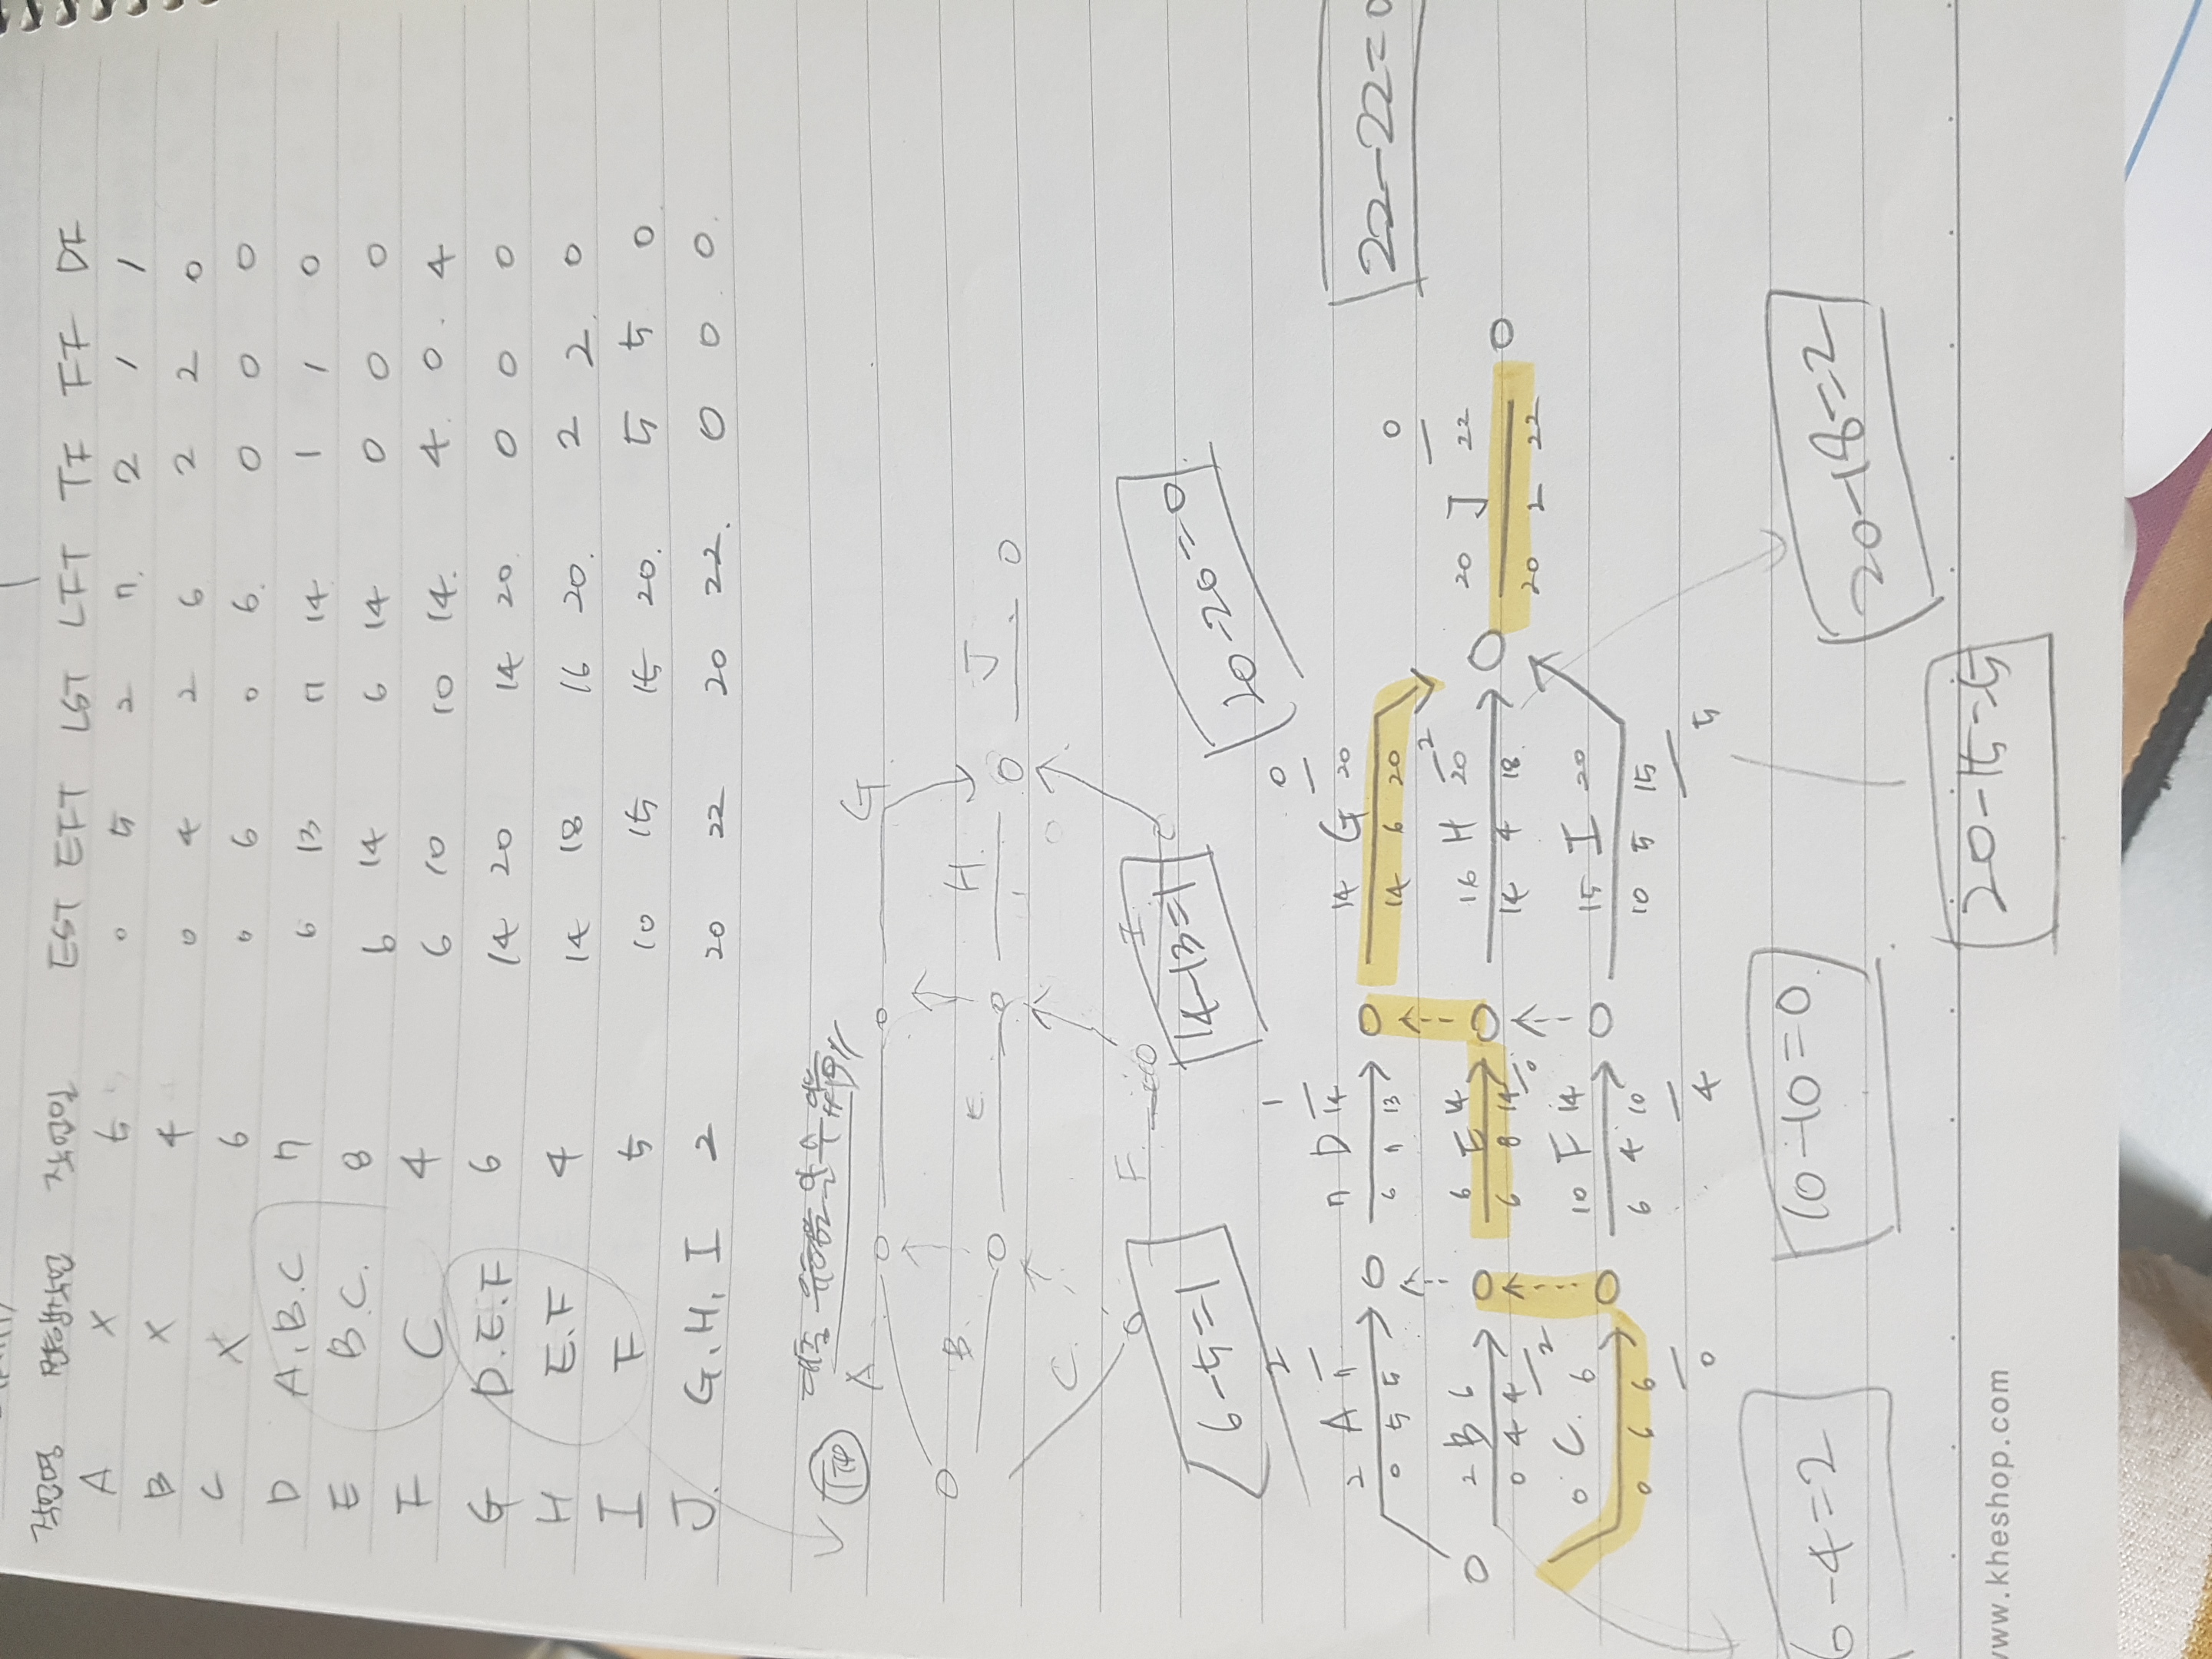 작업명 선행작업 작업일 EST EFT LST LFT TF FF DF
A X 5 0 5 2 7. 2 1 1
B X 4 0 4 2 6 2 2 0
C X 6 0 6 0 6. 0 0 0
D A.B.C 7 6 13 7 14 1 1 0
E B.C. 8 6 14 6 14 0 0 0
F C 4 6 10 10 14. 4. 0. 4
G D.E.F 6 14 20 14 20. 0 0 0
H E.F 4 14 18 16 20. 2 2. 0
I F 5 10 15 15 20. 5 5 0
J. G.H.I 2 20 22 20 22. 0 0. 0.
TF
A G
B. E H. J. 0
C. F. I
6-5=1 14-13=1 20-20=0 22-22=0
2 1 0
2 A 7 7 D 14 14 G 20
0 5 5 6 7 13 14 6 20
2 B 6 6 E 14 16 H 20 2 20 J 22 0
0 4 4 2 6 8 14 0 14 4 18. 20 2 22
0 C. 6 10 F 14 15 I 20
0 6 6 6 4 10 10 5 15
0 4 5
6-4=2 10-10=0 20-18=2
20-15=5
www.kheshop.com